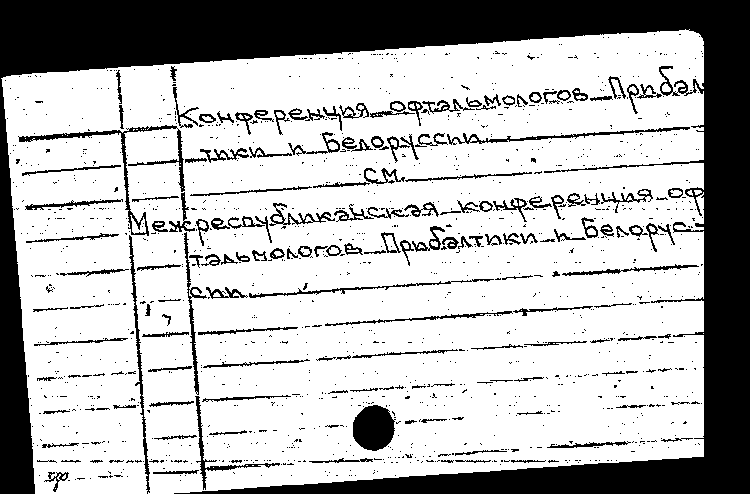 Конференция офтальмологов Прибал
тики и Белоруссии
см.
Межреспубликанская конференция оф
тальмологов Прибалтики и Белорус-
сии